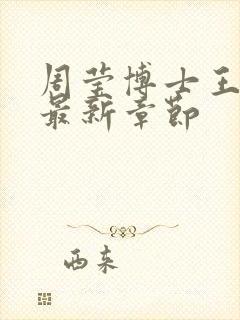 周莹博士王
最新章节
西来